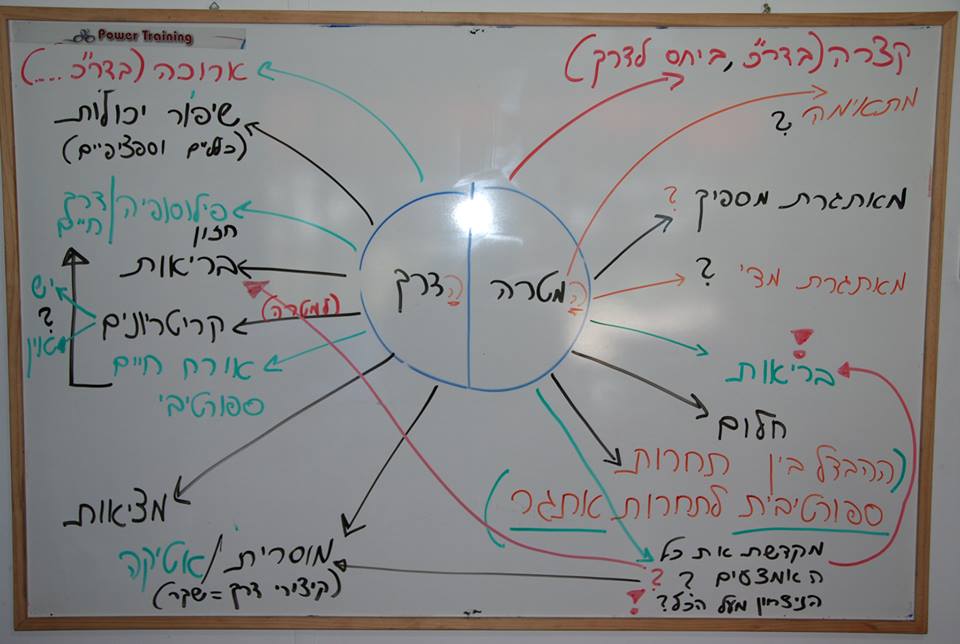 Power Training
קצרה (בדר"כ, ביחס לדרך)
מתאימה
?
מאתגרת מספיק ?
מאתגרת מדי ?
בריאות !
חלום
(ההבדל בין תחרות
ספורטיבית לתחרות אתגר)
מקדשת את כל
האמצעים ? ?
הניצחון מעל הכל? !
המטרה
הדרך
ארוכה (בדר"כ .....)
שיפור יכולות
(כלליים וספציפיים)
פילוסופיה/דרך
חיים
חזון
בריאות
(למטרה)
קריטריונים
יש
?
אין
אורח חיים
ספורטיבי
מציאות
מוסרית/אטיקה
(קיצורי דרך = שקר)